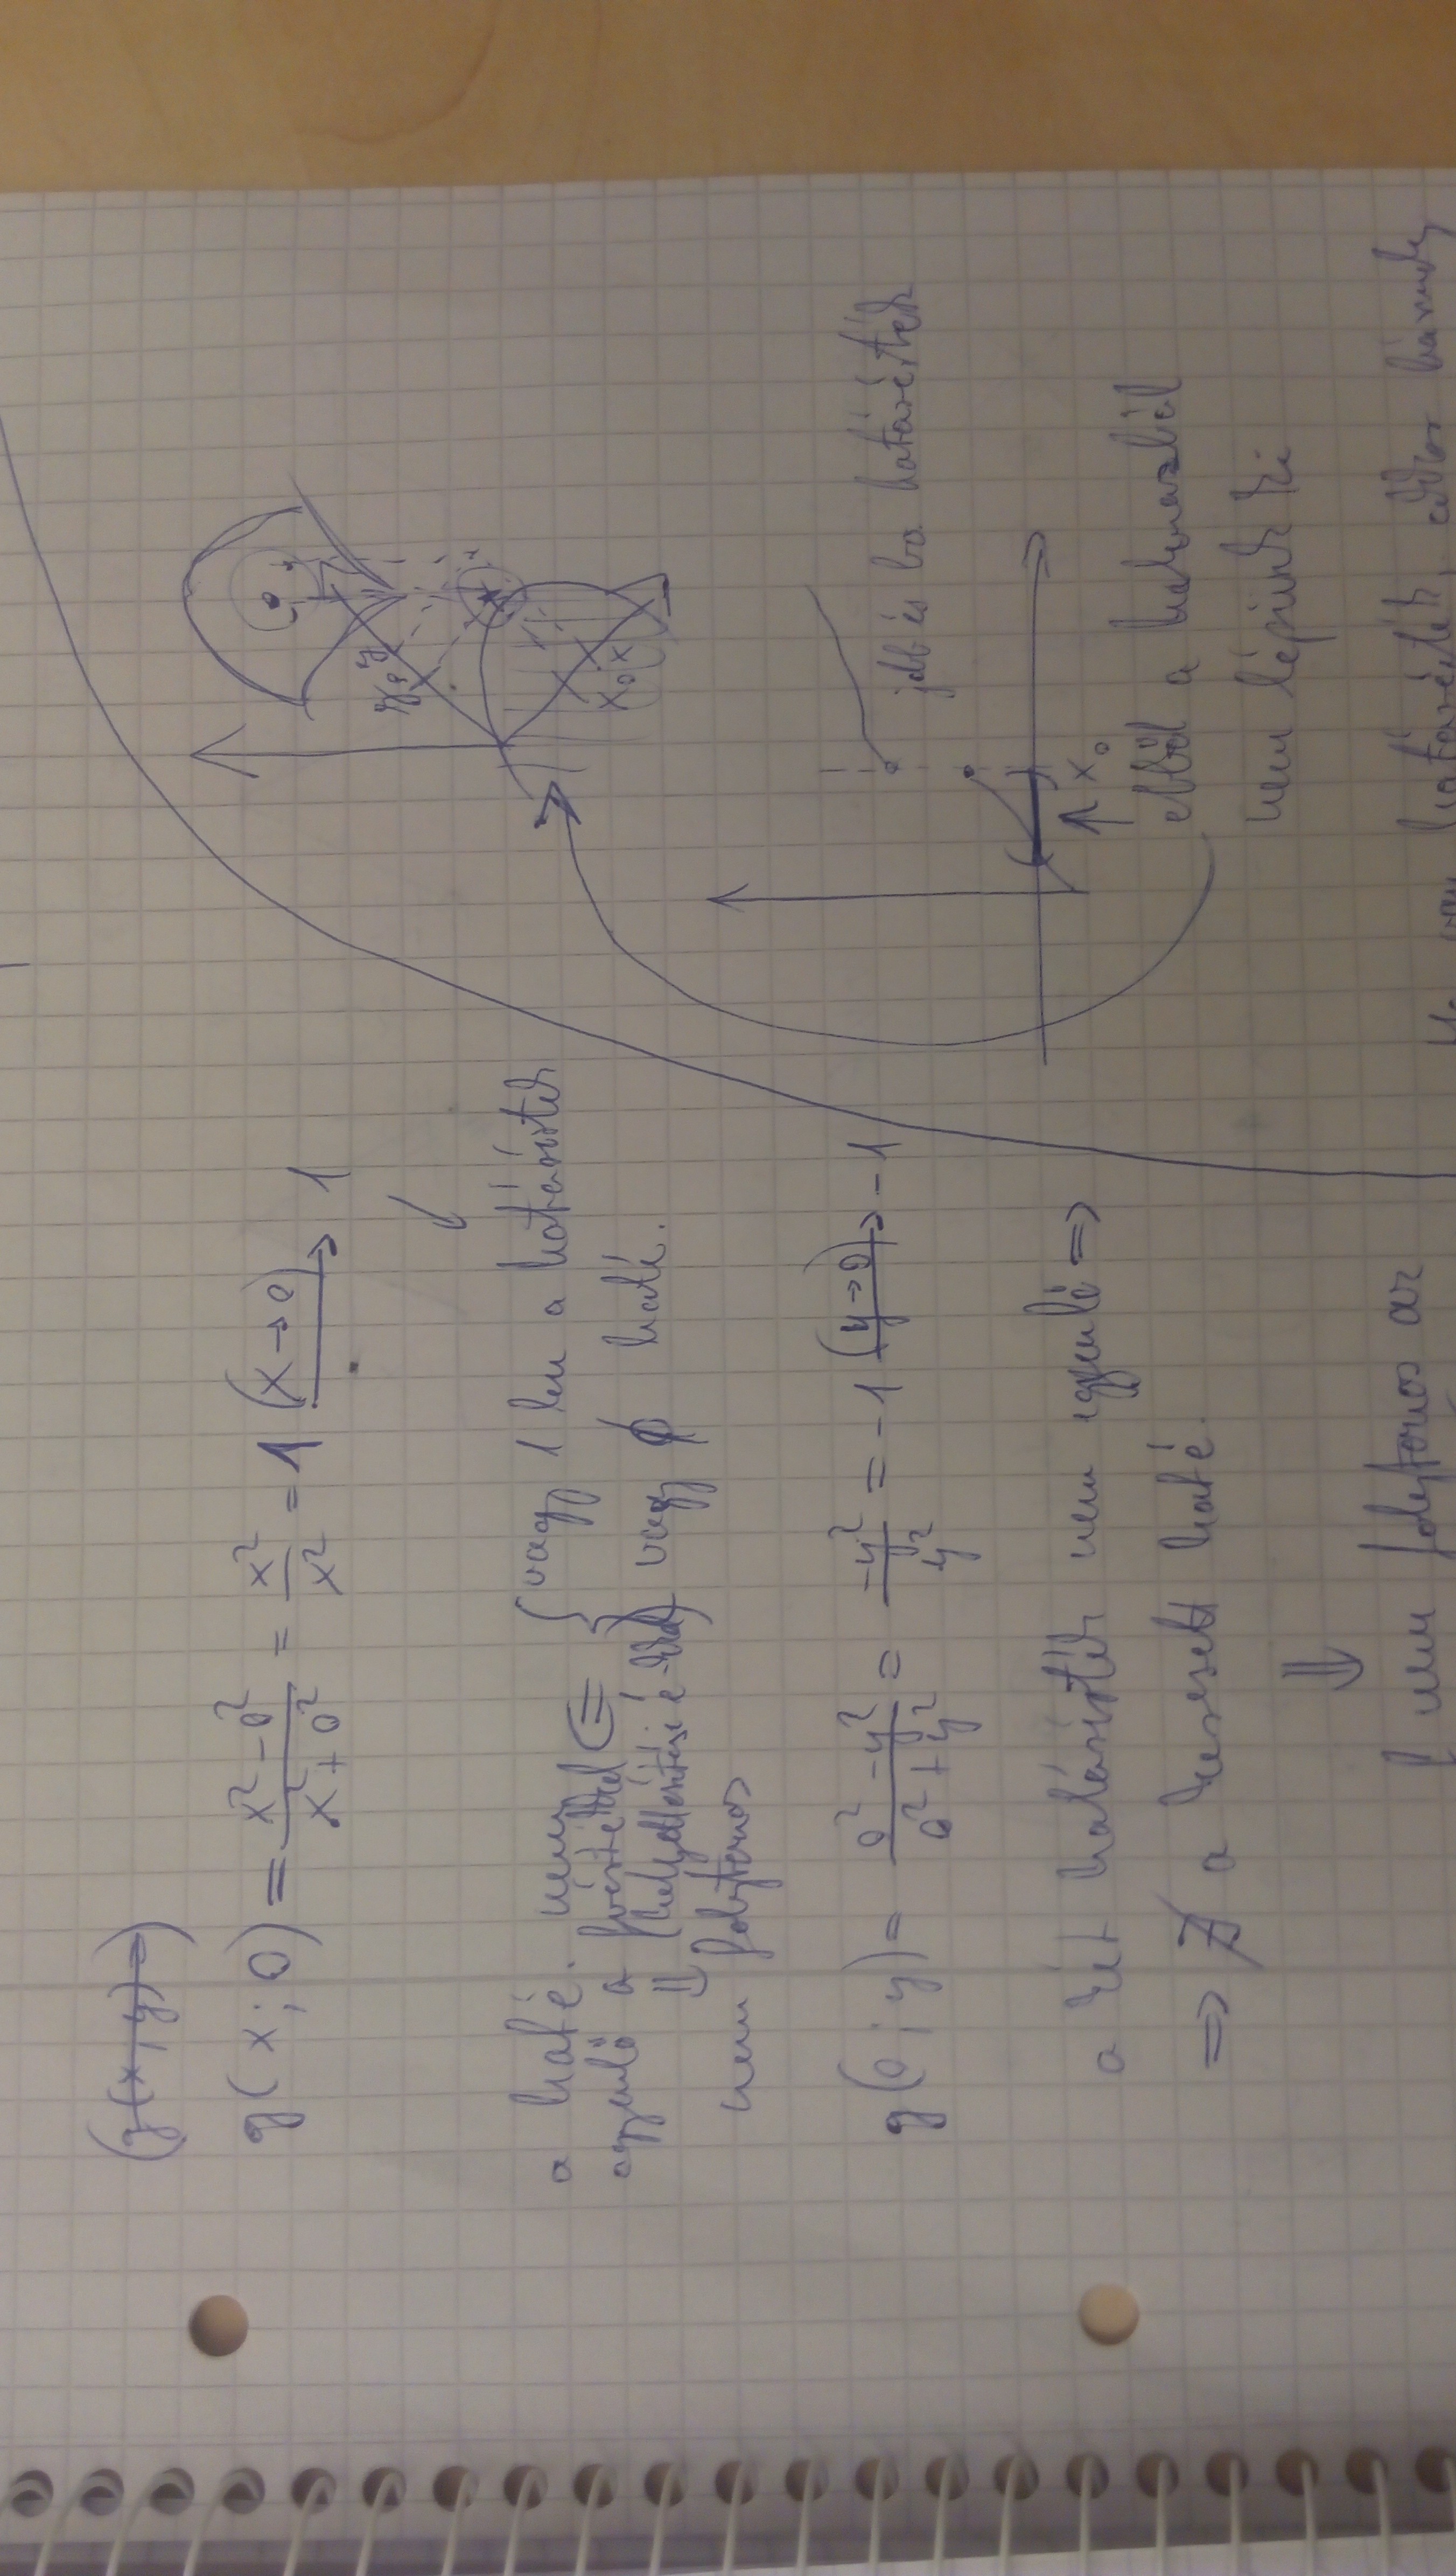 (g(x; y) =)
g(x; 0) = \frac{x^2 - 0^2}{x^2 + 0^2} = \frac{x^2}{x^2} = 1 \xrightarrow{(x \to 0)} 1
↙
a haté. nem ⇐ { vagy 1 len a határérték
egyenlő a fvértékkel
(helyettesítési é-kkel) vagy ∅ haté.
⇓
nem folytonos
g(0; y) = \frac{0^2 - y^2}{0^2 + y^2} = \frac{-y^2}{y^2} = -1 \xrightarrow{(y \to 0)} -1
a két határérték nem egyenlő ⇒
⇒ ∄ a keresett haté.
⇓
f nem folytonos az
y_0 y
x_0 x
jobb és ba. határérték
↑ x_0
ebből a halmazból
nem lépünk ki
Ha van határérték, akkor bármely